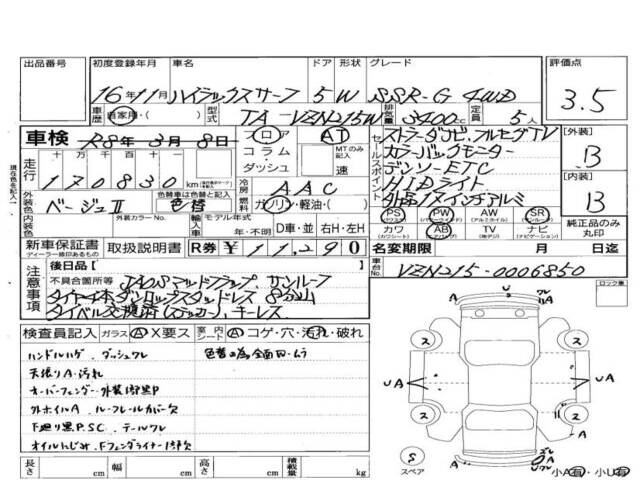 出品番号 初度登録年月 車名 ドア 形状 グレード 評価点
16年11月 ハイラックスサーフ 5 W SSR-G 4WD 3.5
車歴 自家用・( ) 型式 TA-VZN215W 排気量 3400cc 定員 5人
車検 R8年3月8日 フロア コラム ダッシュ AT MTのみ記入 速
セールスポイント ストラーダナビ・フルセグTV
カラーバックモニター
デンソーETC
HiDライト
外品17インチアルミ
[外装] B
[内装] B
走行 十万 万 千 百 十 一
170830km
冷房 AAC
外装色 ベージュII 色替車は色替と記入 色替
内装色 外装カラーNo. 輸入車 モデル年式 年・不明 D車・並 右H・左H
燃料 ガソリン・軽油・( )
PS (パワステ) PW (パワーウィンド) AW (アルミホイル) SR (サンルーフ)
カワ (カワシート) AB (エアバッグ) TV (地デジ) ナビ (ナビゲーション)
純正品のみ丸印
新車保証書 ディーラー捺印あるもの 取扱説明書 R券 ¥11,290 名変期限 月 日迄
注意事項 後日品[ ]
不具合箇所等 JAOSマッドフラップ、サンルーフ
タイヤ4本ダンロップスタッドレス 8分山
タイベル交換済(ステッカー)、キーレス
車台No. VZN215-0006850
ロック車
検査員記入 ガラス A X要ス 室内シート A コゲ・穴・汚れ・破れ
ハンドルハゲ、ダッシュワレ 色替の為全面凹・ムラ
天張りA・汚れ
オーバーフェンダー・外装1部黒P
外ホイルA ルーフレールカバー欠
下廻り黒P.SC. テールワレ
オイルにじみ、Fフェンダーライナー1部欠
長さ cm 幅 cm 高さ cm 積載量 kg
スペア 小A有・小U有